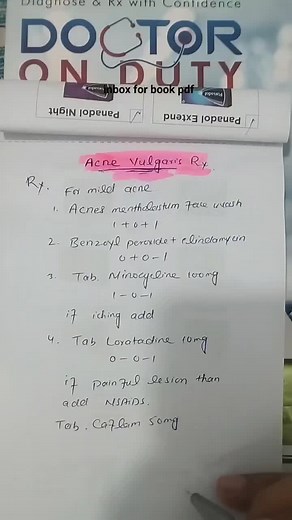 Diagnose & Rx with Confidence
DOCTOR
ON DUTY
Inbox for book pdf
Panadol Night
Panadol Extend
Acne Vulgaris Rx
Rx. For mild acne
1. Acnes mentholatum Face wash
1 + 0 + 1
2. Benzoyl peroxide + clindamycin
0 + 0 - 1
3. Tab. Minocycline 100mg
1 - 0 - 1
if iching add
4. Tab Loratadine 10mg
0 - 0 - 1
if painful lesion than
add NSAIDS.
Tab. Caflam 50mg